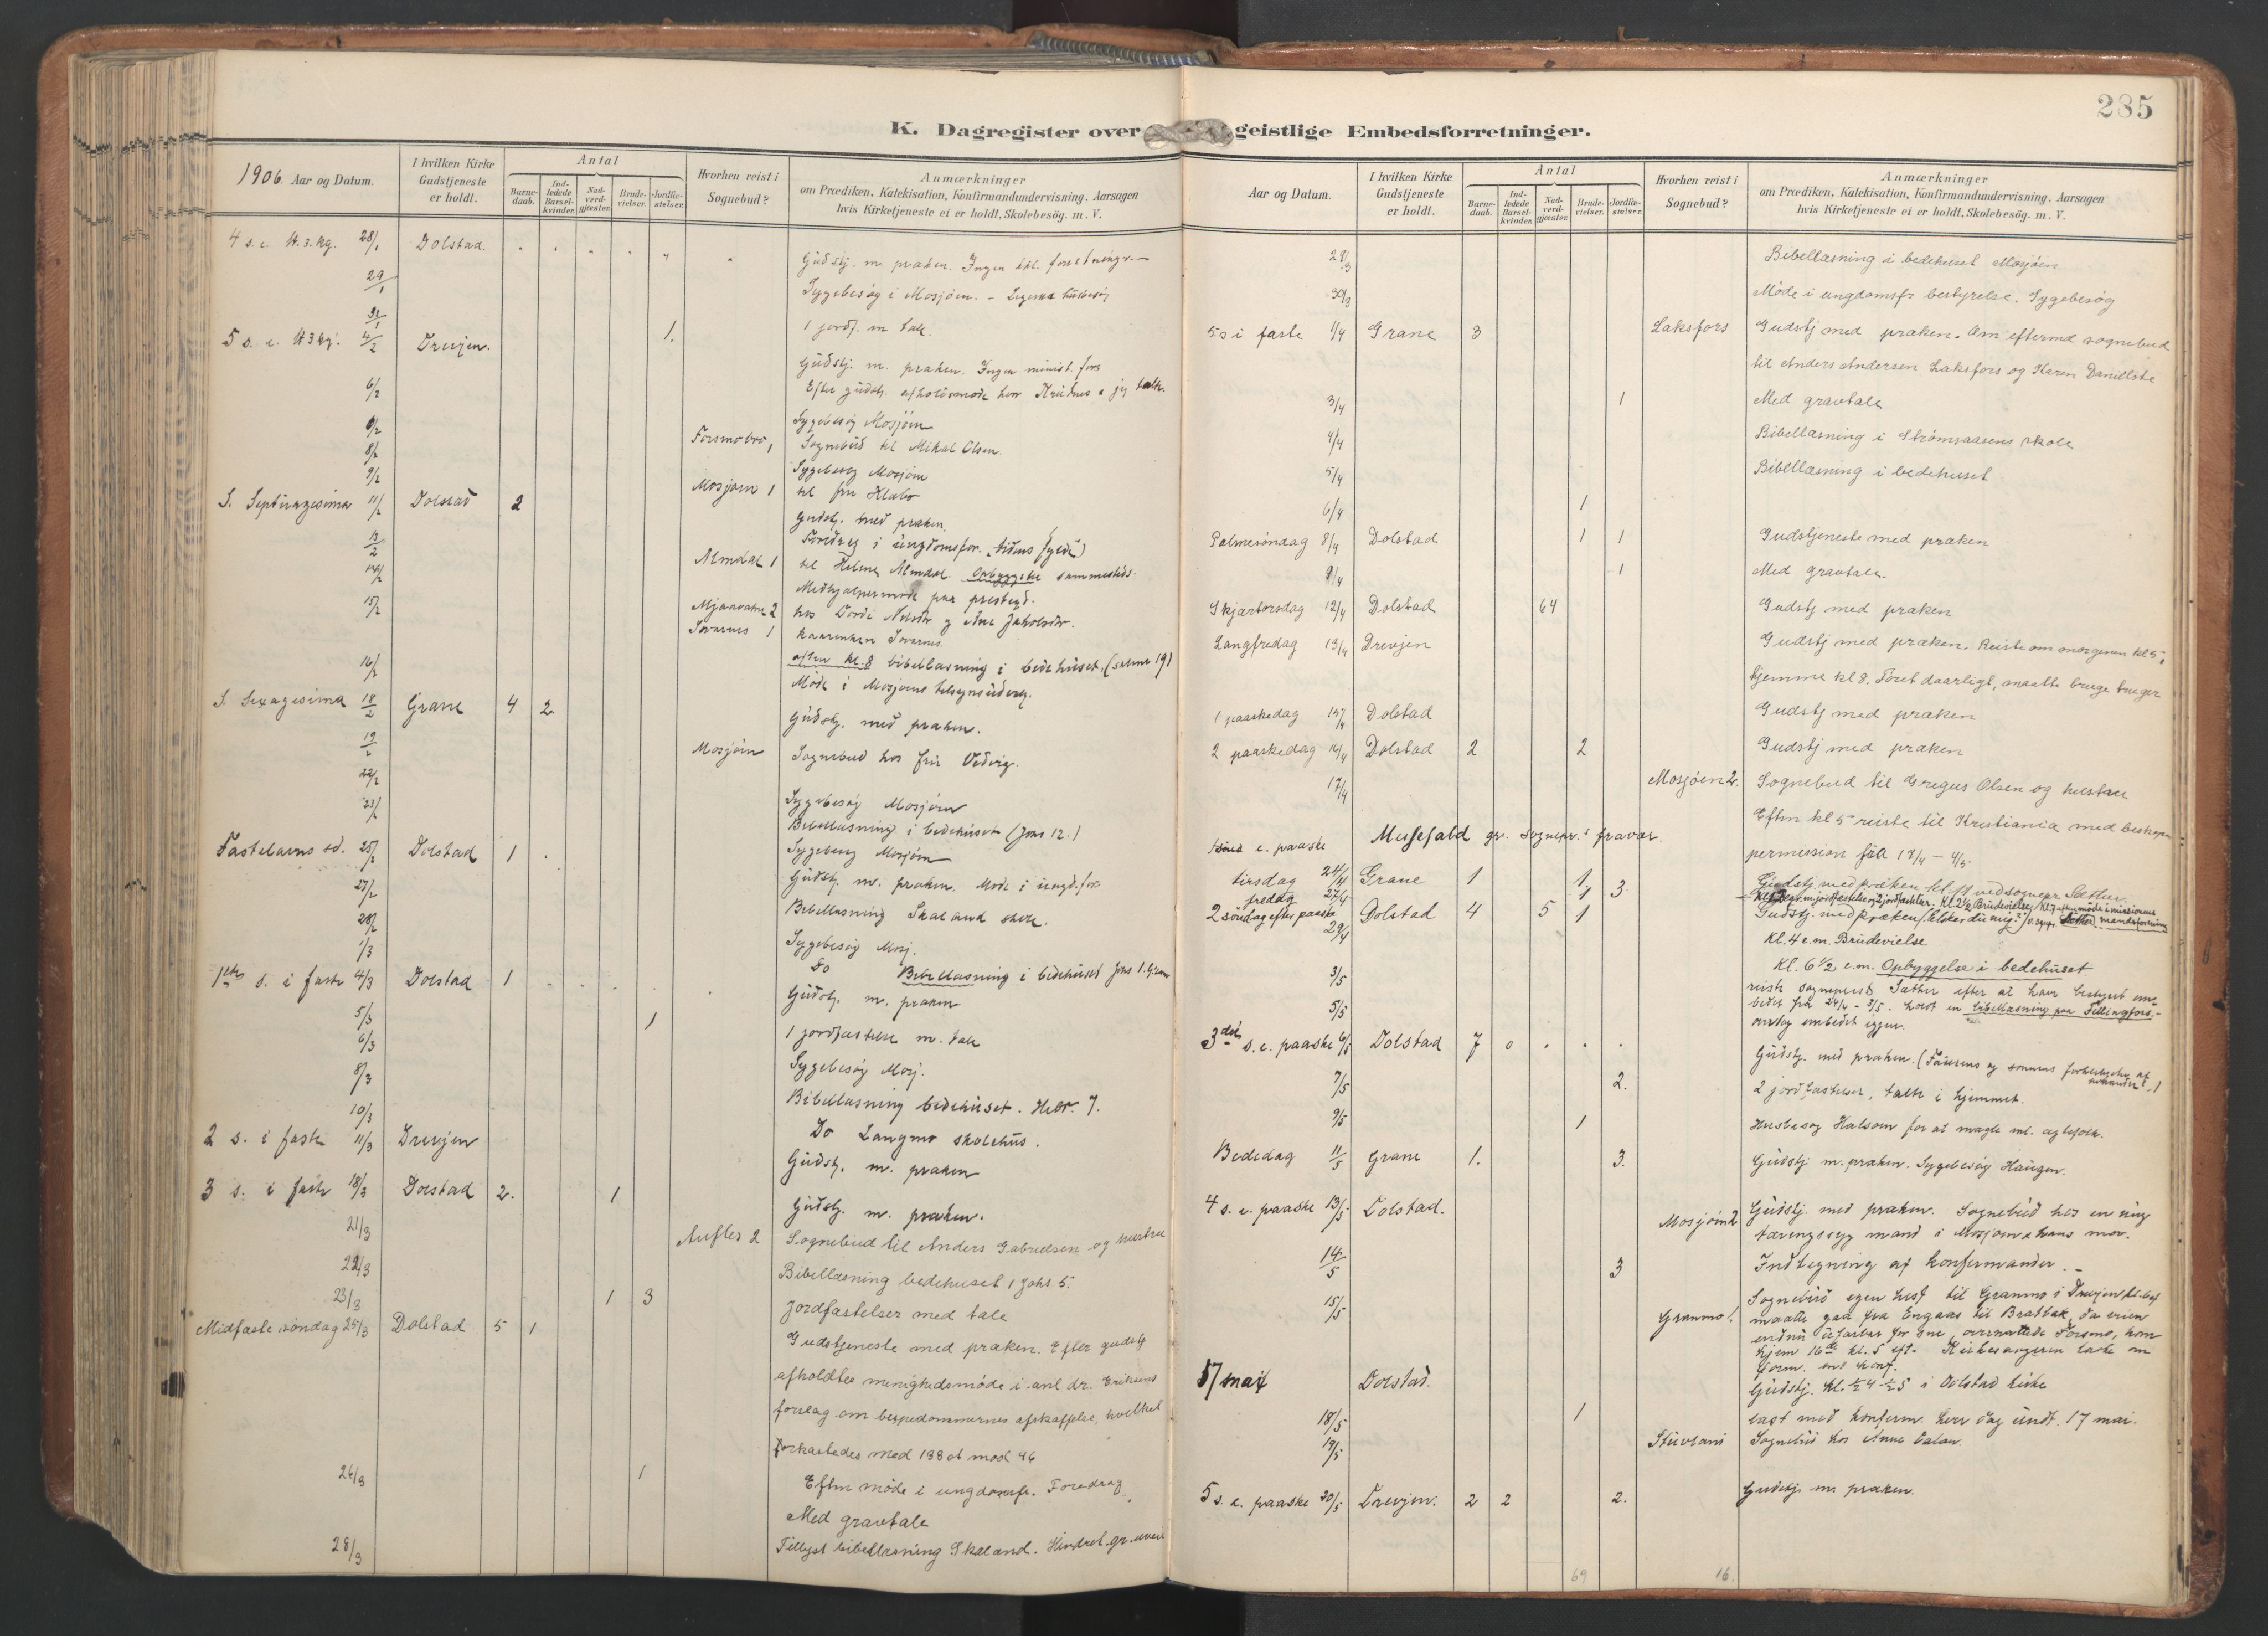 285
K. Dagregister over geistlige Embedsforretninger.
1906. Aar og Datum.
I hvilken Kirke Gudstjeneste er holdt.
Antal
Barnedaab.
Indledede Barselkvinder.
Nadverdgjæster.
Brudevielser.
Jordfæstelser.
Hvorhen reist i Sognebud?
Anmærkninger
om Prædiken, Katekisation, Konfirmandundervisning, Aarsagen
hvis Kirketjeneste ei er holdt, Skolebesög. m. V.
4 s. e. H.3.kg. 28/1 Dolstad. Gudstj. m. præken. Ingen kkl. forretninger.
29/1 Sygebesøg i Mosjøen.
31/1 1. 1 jordf. m tale.
5 s. e. H3kg. 4/2 Drevjen. Gudstj. m. præken. Ingen minist. forr.
6/2 Sygebesøg Mosjøen
8/2 Forsmobro 1 Sognebud til Mikal Olsen.
9/2 Sygebesøg Mosjøen
Mosjøen 1 til fru
S. Septuagesima 11/2 Dolstad 2 Gudstj. med præken.
13/2 Foredrag i ungdomsfor.
14/2 Almdal 1 til Helene Almdal. Opbyggelse sammesteds.
Medhjælpermøde paa prestegd.
15/2 2
1
aften kl. 8 bibellæsning i bedehuset. (salme 19)
16/2 Møde i Mosjøens tilsynsudvalg.
S. Sexagesima 18/2 Grane 4 2 Gudstj. med præken.
19/2 Mosjøen Sognebud hos fru Vedvig.
22/2 Sygebesøg Mosjøen
23/2 Bibellæsning i bedehuset (Johs 12.)
Sygebesøg Mosjøen
Fastelavns sd. 25/2 Dolstad 1 Gudstj. m. præken. Møde i ungd.for.
27/2 Bibellæsning Skaland skole.
28/2 Sygebesøg Mosj.
1/3 Do Bibellæsning i bedehuset
1ste s. i faste 4/3 Dolstad 1 Gudstj. m. præken
5/3 1 1 jordfæstelse m. tale
6/3 Sygebesøg Mosj.
8/3 Bibellæsning bedehuset. Hebr. 7.
10/3 Do Langmo skolehus.
2 s. i faste 11/3 Drevjen Gudstj. m. præken
3 s. i faste 18/3 Dolstad 2. 1 Gudstj. m. præken.
21/3 Aufles 2 Sognebud til Anders Gabrielsen og hustru
22/3 Bibellæsning bedehuset 1 Johs 5.
23/3 1 3 Jordfæstelser med tale
Midfaste söndag 25/3 Dolstad 5 1 Gudstjeneste med præken. Efter gudstj
afholdtes menighedsmöde i anl dr. Eriksens
forslag om bespedommernes afskaffelse, hvilket
forkastedes med 138 st mod 46
Eftm möde i ungdomsf. Foredrag
26/3 1 Med gravtale
28/3 Tillyst bibellæsning Skaland. Hindret gr. uveir
Aar og Datum.
I hvilken Kirke Gudstjeneste er holdt.
Antal
Barnedaab.
Indledede Barselkvinder.
Nadverdgjæster.
Brudevielser.
Jordfæstelser.
Hvorhen reist i Sognebud?
Anmærkninger
om Prædiken, Katekisation, Konfirmandundervisning, Aarsagen
hvis Kirketjeneste ei er holdt, Skolebesög. m. V.
29/3 Bibellæsning i bedehuset Mosjöen
30/3 Möde i ungdomsfs bestyrelse. Sygebesög
5 s i faste 1/4 Grane 3 Laksfors Gudstj med præken. Om eftermd sognebud
til Anders Andersen Laksfors og Karen Danielsdr
3/4 1 Med gravtale
4/4 Bibellæsning i Strömsaasens skole
5/4 Bibellæsning i bedehuset
6/4 1
Palmesöndag 8/4 Dolstad 1 1 Gudstjeneste med præken
9/4 1 Med gravtale.
Skjærtorsdag 12/4 Dolstad 64 Gudstj med præken
Langfredag 13/4 Drevjen Gudstj med præken. Reiste om morgenen kl 5,
hjemme kl 8. Föret daarligt, maatte bruge truger
1 paaskedag 15/4 Dolstad Gudstj med præken
2 paaskedag 16/4 Dolstad 2 2 Gudstj med præken
17/4 Mosjöen 2. Sognebud til Gregus Olsen og hustru
Eftm kl 5 reiste til Kristiania med
permission fra 17/4 – 4/5.
1 e. paaske Messefald gr. sognepr.s fravær.
tirsdag 24/4 Grane 1 1 3 Gudstj. med præken kl. 11 ved sognepr Sæther
fredag 27/4 1
2 söndag efter paaske 29/4 Dolstad 4 5 1 Gudstj. med præken (Elsker du mig?)
Kl. 4 e.m. Brudevielse
Kl. 6 1/2 e.m. Opbyggelse i bedehuset
3/5 reiste sogneprest Sæther efter at have bestyret embedet
fra 24/4 – 3/5. holdt en bibellæsning paa Fellingfors.
5/5 overtog embedet igjen.
3die s. e. paaske 6/5 Dolstad 7 0 Gudstj. med præken.
7/5 2. 2 jordfæstelser, talte i hjemmet.
9/5 1 Husbesøg Halsøen for at mægle ml. ægtefolk.
Bededag 11/5 Grane 1. 3. Gudstj m. præken. Sygebesøg Haugen.
4 s. e. paaske 13/5 Dolstad. Mosjøen 2 Gudstj. med præken. Sognebud hos en ung
tæringssyg mand i Mosjøen & hans mor.
14/5 3 Indtegning af konfirmander.
15/5 Granmo 1 Sognebud egen hest til Granmo i Drevjen
maatte gaa fra Engaas til Bratbak, da veien
endnu ufarbar for sne, overnattede Forsmo, kom
hjem 16de kl. 5 eft. Kirkesangeren læste m
17 mai Dolstad. Gudstj. kl. 1/2 4 - 1/2 5 i Dolstad kirke
18/5 1 læst med konfirm. hver dag undt. 17 mai.
19/5 Stuvland Sognebud hos Anne
5 s. e. paaske 20/5 Drevjen. 2 2 2. Gudstj. m. præken.
69 16.